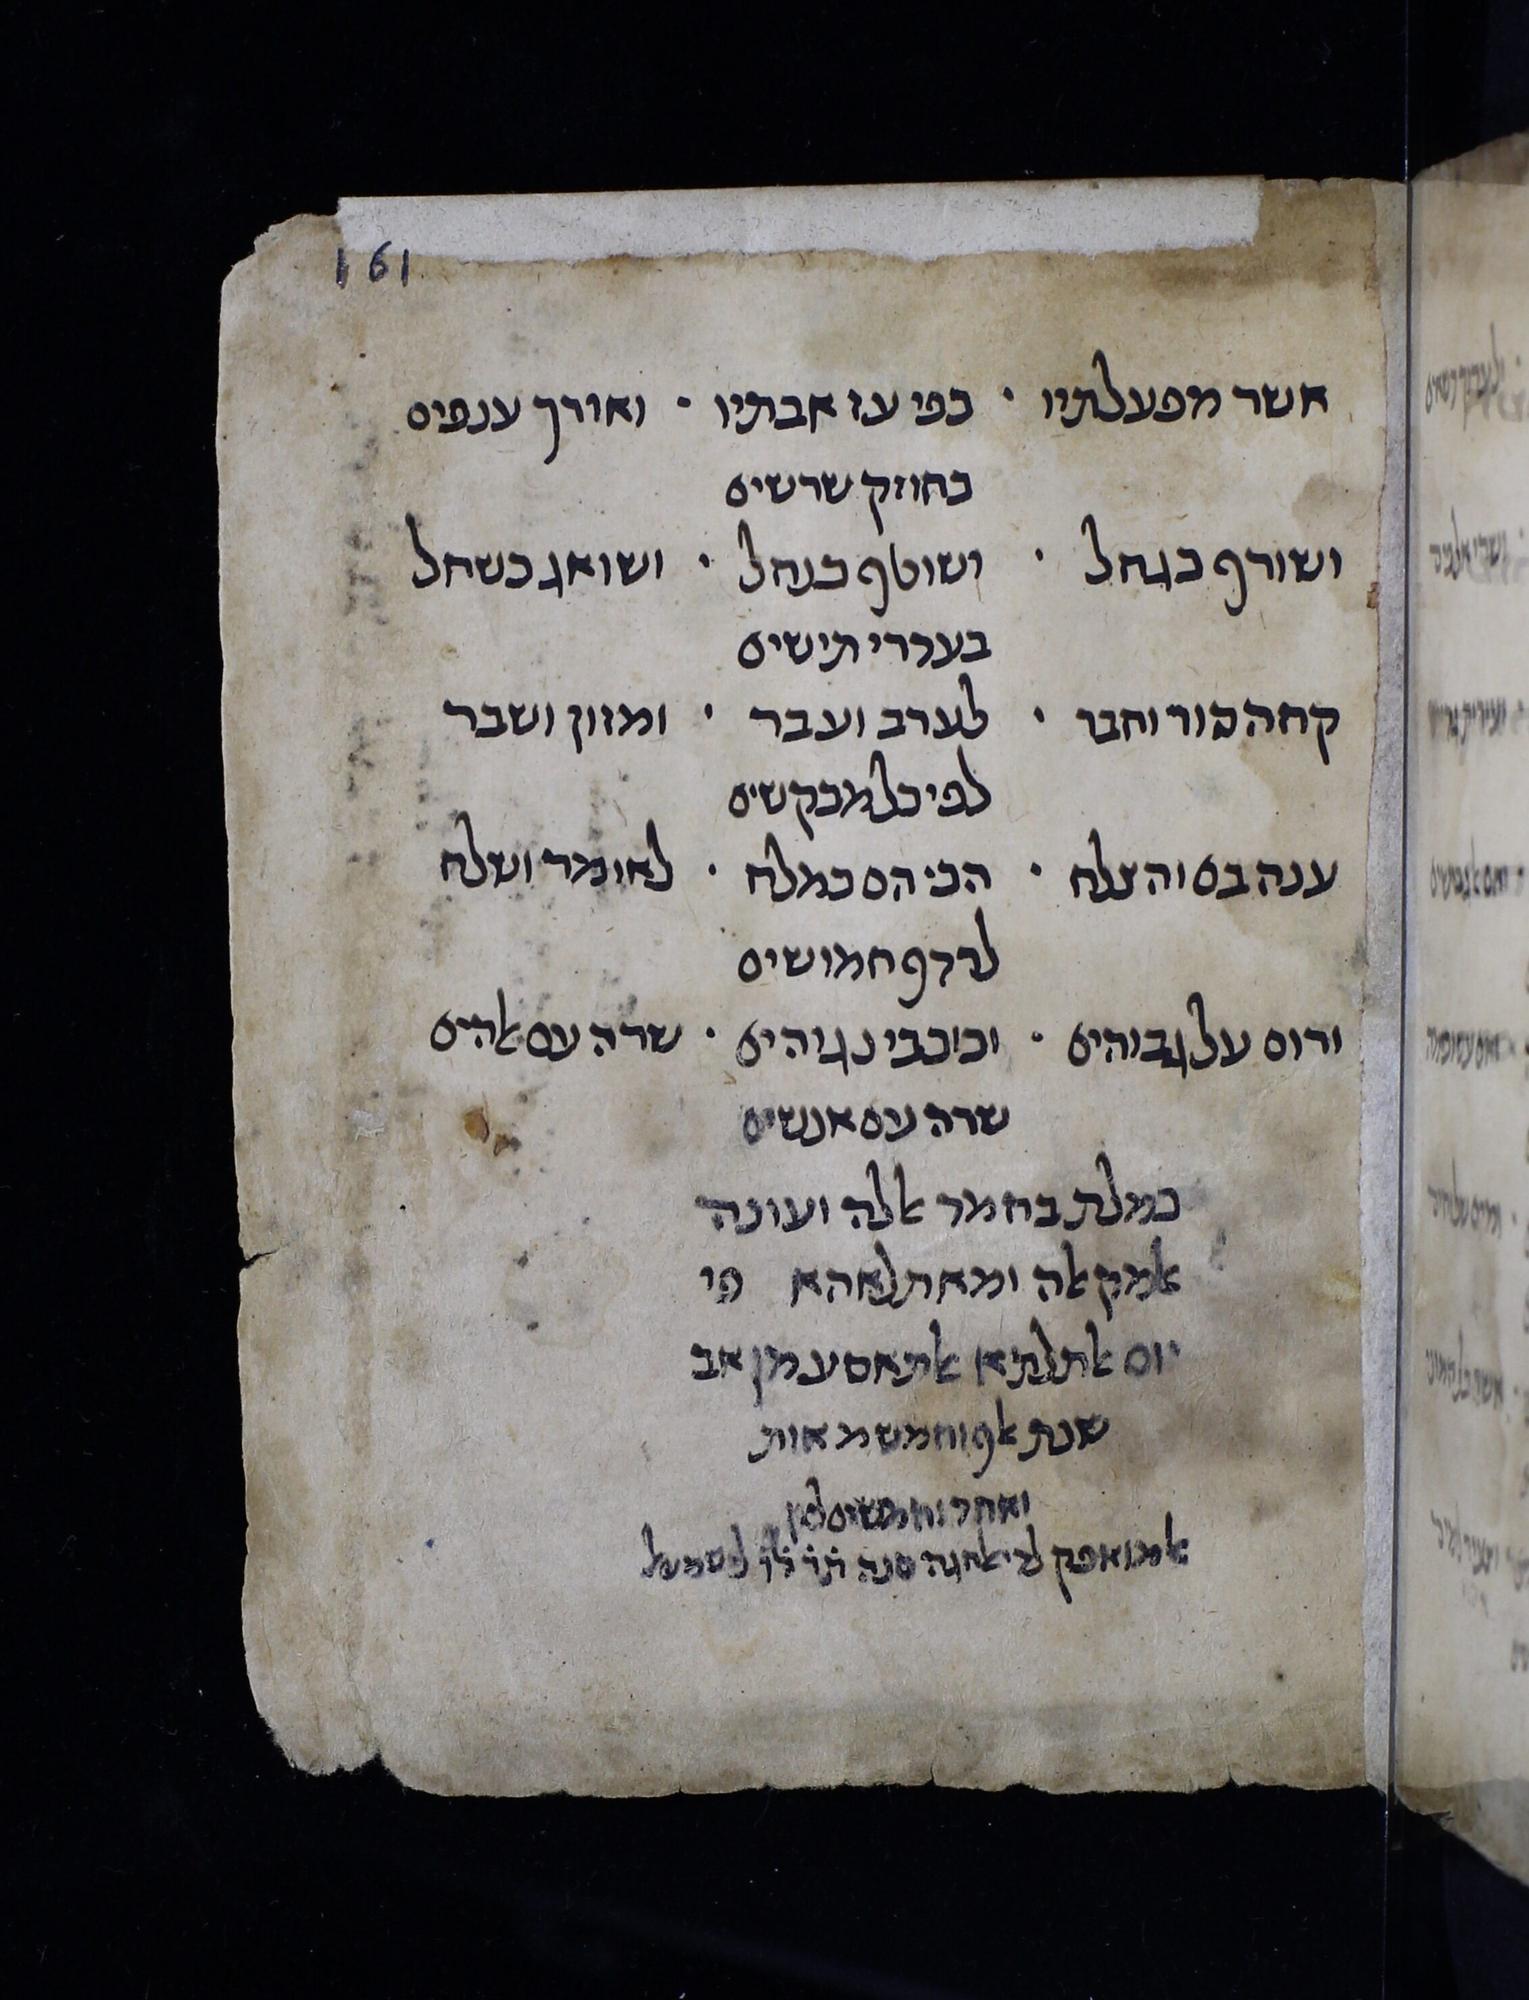 161
אשר מפעלתיו · כפי עז אבתיו · ואורך ענפים
כחוזק שרשים
ושורף כגחל · ושוטף כנחל · ושואג כשחל
בעדרי תישים
קחה פור וחבר · לערב ועבר · ומזון ושבר
לפי כל מבקשים
ענה בם והצלח · הכי הם כמלח · לחומר ושלח
לרדף חמושים
ורום על גבוהים · וכוכבי נגיהים · שרה עם אלהים
שרה עם אנשים
כמלת בחמד אללה ועונה
אלמקאלה ומא תלאהא פי
יום אלתלתא אלתאסע מן אב
שנת אלף וחמש מאות
ואחד וחמשים
אלמואפק לדי אלחגה סנה